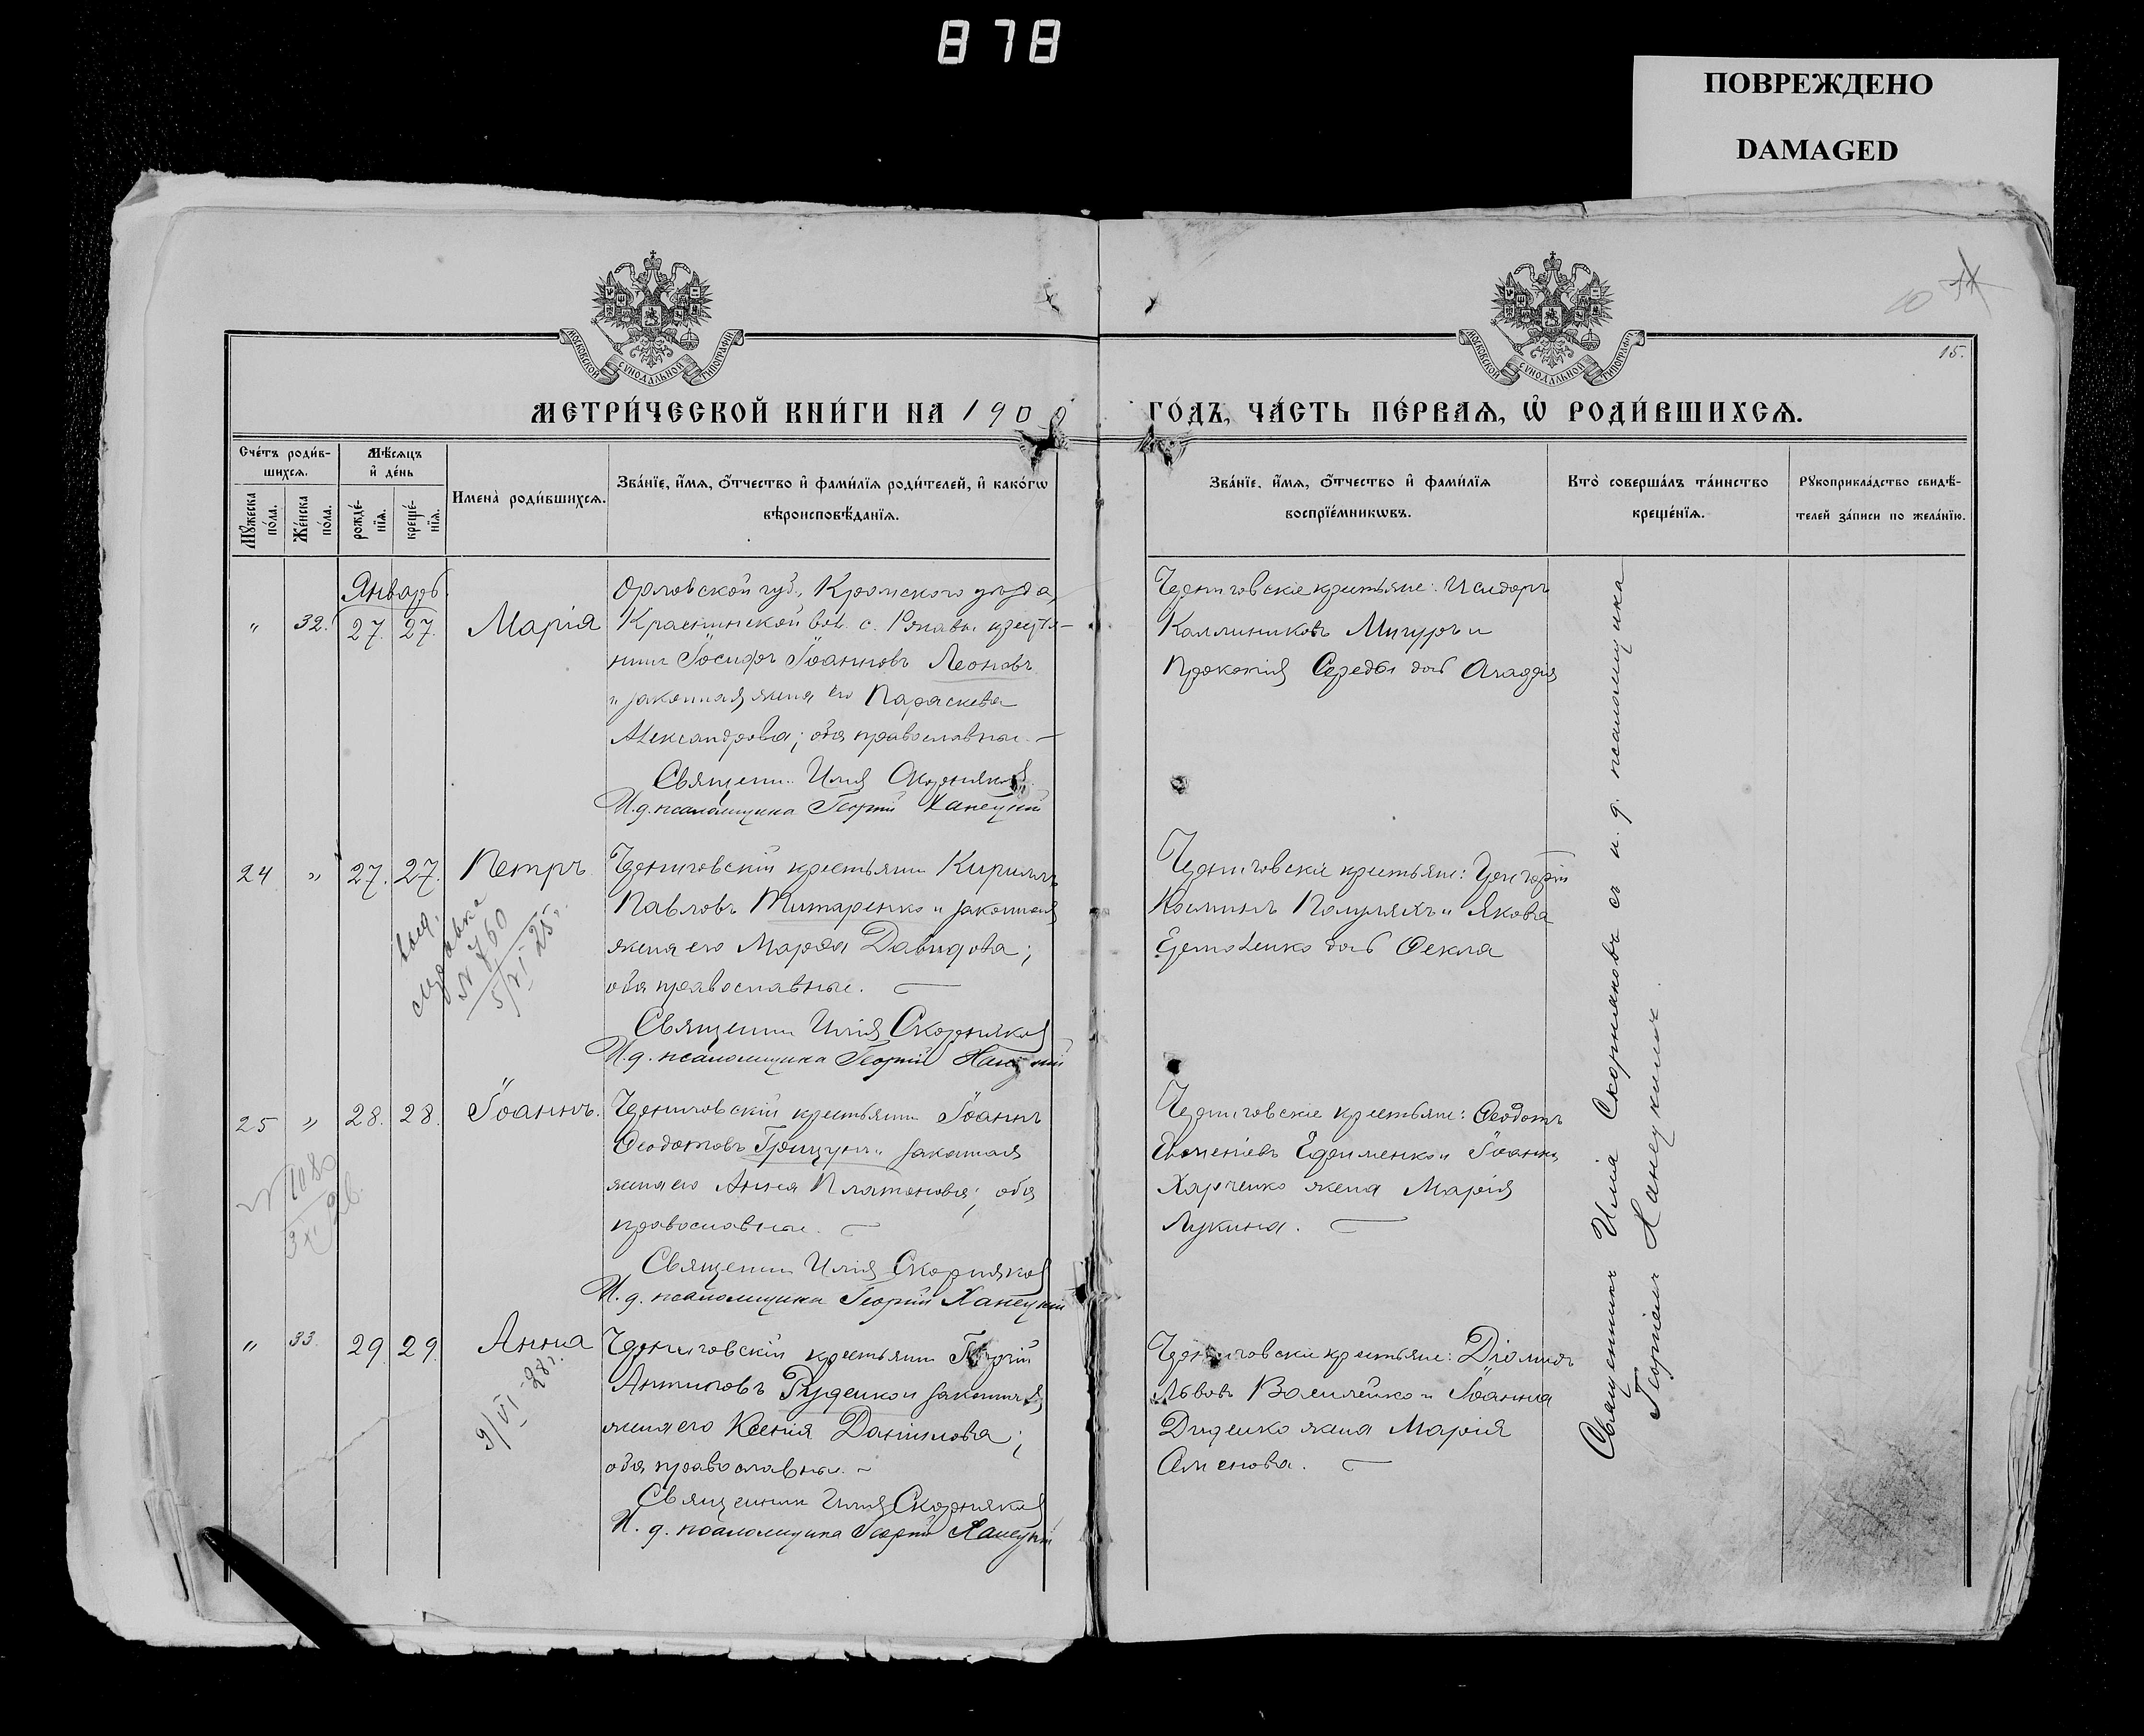 878
ПОВРЕЖДЕНО
DAMAGED
МОСКОВСКОЙ СѴНОДАЛЬНОЙ ТИПОГРАФІИ
МОСКОВСКОЙ СѴНОДАЛЬНОЙ ТИПОГРАФІИ
15.
МЕТРИ́ЧЕСКОЙ КНИ́ГИ НА 190
ГО́ДЪ, ЧА́СТЬ ПЕ́РВАѦ, Ѿ РОДИ́ВШИХСѦ.
Сче́тъ роди́в-
шихсѧ.
Мꙋ́жеска по́ла.
Же́нска по́ла.
Мѣ́сѧцъ
и҆ де́нь
рожде́-
нїѧ.
креще́-
нїѧ.
Имена̀ роди́вшихсѧ.
Зва́нїе, и҆́мѧ, о҆́тчество и҆ фами́лїѧ роди́телей, и҆ како́гѡ
вѣроисповѣ́данїѧ.
Зва́нїе, и҆́мѧ, о҆́тчество и҆ фами́лїѧ
воспрїе́мникѡвъ.
Кто̀ соверша́лъ та́инство
креще́нїѧ.
Рꙋкоприкла́дство свидѣ́-
телей за́писи по жела́нїю.
Январь
" 32. 27. 27. Марія
Орловской губ., Кромскаго уѣзда,
Краснинской вол. с.
нинъ Іосифъ Іоанновъ Леоновъ
и законная жена его Параскева
Александрова; оба православные. —
Священн. Илія Скорняковъ
И.д. псаломщика Георгій Ханецкій
Черниговскіе крестьяне: Исидоръ
Каллиниковъ Мигуръ и
Прокопія Середы дочь Агафія
24 " 27. 27. Петръ
Черниговскій крестьянинъ Кириллъ
Павловъ Титаренко и законная
жена его Марѳа Давидова;
оба православные. —
Священникъ Илія Скорняковъ
И.д. псаломщика Георгій Ханецкій
выд.
справка
№ 760
5/VI 25 г.
Черниговскіе крестьяне: Григорій
Косминъ Полуляхъ и Якова
Ермоленко дочь Ѳекла
25 " 28. 28. Іоаннъ.
Черниговскій крестьянинъ Іоаннъ
Ѳеодотовъ Грицунъ и законная
жена его Анна Платонова; оба
православные. —
Священникъ Илія Скорняковъ
И.д. псаломщика Георгій Ханецкій
Черниговскіе крестьяне: Ѳеодотъ
Евменіевъ Ефименко и Іоанна
Харченко жена Марія
Лукина. —
" 33. 29. 29. Анна
Черниговскій крестьянинъ Георгій
Антиповъ Руденко и законная
жена его Ксенія Даніилова;
оба православные. —
Священникъ Илія Скорняковъ
И.д. псаломщика Георгій Ханецкій
9/VI-28 г.
Черниговскіе крестьяне: Діомидъ
Львовъ Василейко и Іоанна
Диденко жена Марія
Семенова. —
Священникъ Илія Скорняковъ съ и. д. псаломщика
Георгіемъ Ханецкимъ.